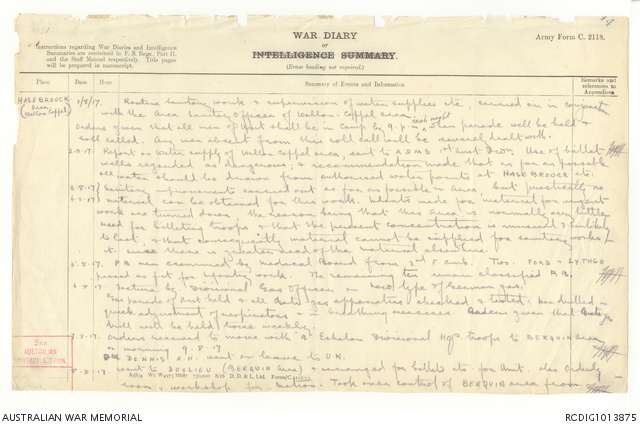 WAR DIARY
or
INTELLIGENCE SUMMARY.
(Erase heading not required.)
Army Form C. 2118.
Instructions regarding War Diaries and Intelligence
Summaries are contained in F. S. Regs., Part II.
and the Staff Manual respectively. Title pages
will be prepared in manuscript.
Place
Date
Hour
Summary of Events and Information
Remarks and
references to
Appendices
HAZEBROUCK
Area
(Wallon Cappel)
1/8/17. Routine sanitary work & supervision of water supplies etc. carried on in conjunction
with the Area Sanitary Officer of Wallon-Cappel area.
Orders given that all men of Unit shall be in Camp by 9 p.m. each night when parade will be held &
roll called. Any man absent from this roll call will be severely dealt with.
Report on water supply of Wallon Cappel area, sent to A.D.M.S. 1st Aust Divn. Use of billet
wells regarded as dangerous, & recommendation made that as far as possible
all water should be drawn from authorised water points at HAZEBROUCK etc.
Sanitary improvements carried out as far as possible in area, but practically no
material can be obtained for this work. Indents made for material for urgent
work are turned down, the reason being that this area is normally very little
used for billeting troops & that the present concentration is unusual & unlikely
to last, & that consequently material cannot be supplied for sanitary works in
it since there is a greater need of the material elsewhere.
P.B. men examined by Medical Board from
FORD & LYTHGO
passed as fit for Infantry work. The remaining ten remain classified P.B.
Lecture by Divisional Gas Officer on new type of German gas.
Gas parade of Unit held & all anti gas apparatus checked & tested. Men drilled in
quick adjustment of respirators & in breathing exercises. Orders given that anti gas
drill will be held twice weekly.
Orders received to move with "B" Echelon Divisional Hqs troops to BERQUIN area
on morning 9.8.17
DENNIS. A.H. went on leave to U.K.
8.8.17 Went to DOULIEU (BERQUIN Area) & arranged for billets etc for Unit. Also Orderly
room, & workshop for Section. Took over control of BERQUIN area from
AUSTRALIAN WAR MEMORIAL
RCDIG1013875